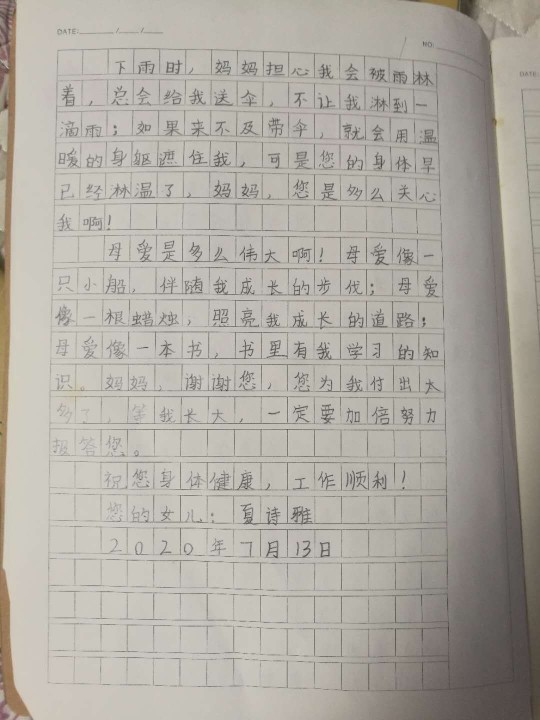 DATE: / /
NO:
下雨时，妈妈担心我会被雨淋
着，总会给我送伞，不让我淋到一
滴雨；如果来不及带伞，就会用温
暖的身躯遮住我，可是您的身体早
已经淋温了，妈妈，您是多么关心
我啊！
母爱是多么伟大啊！母爱像一
只小船，伴随我成长的步伐；母爱
像一根蜡烛，照亮我成长的道路；
母爱像一本书，书里有我学习的知
识。妈妈，谢谢您，您为我付出太
多了，等我长大，一定要加倍努力
报答您。
祝您身体健康，工作顺利！
您的女儿：夏诗雅
2020年7月13日
DATE: